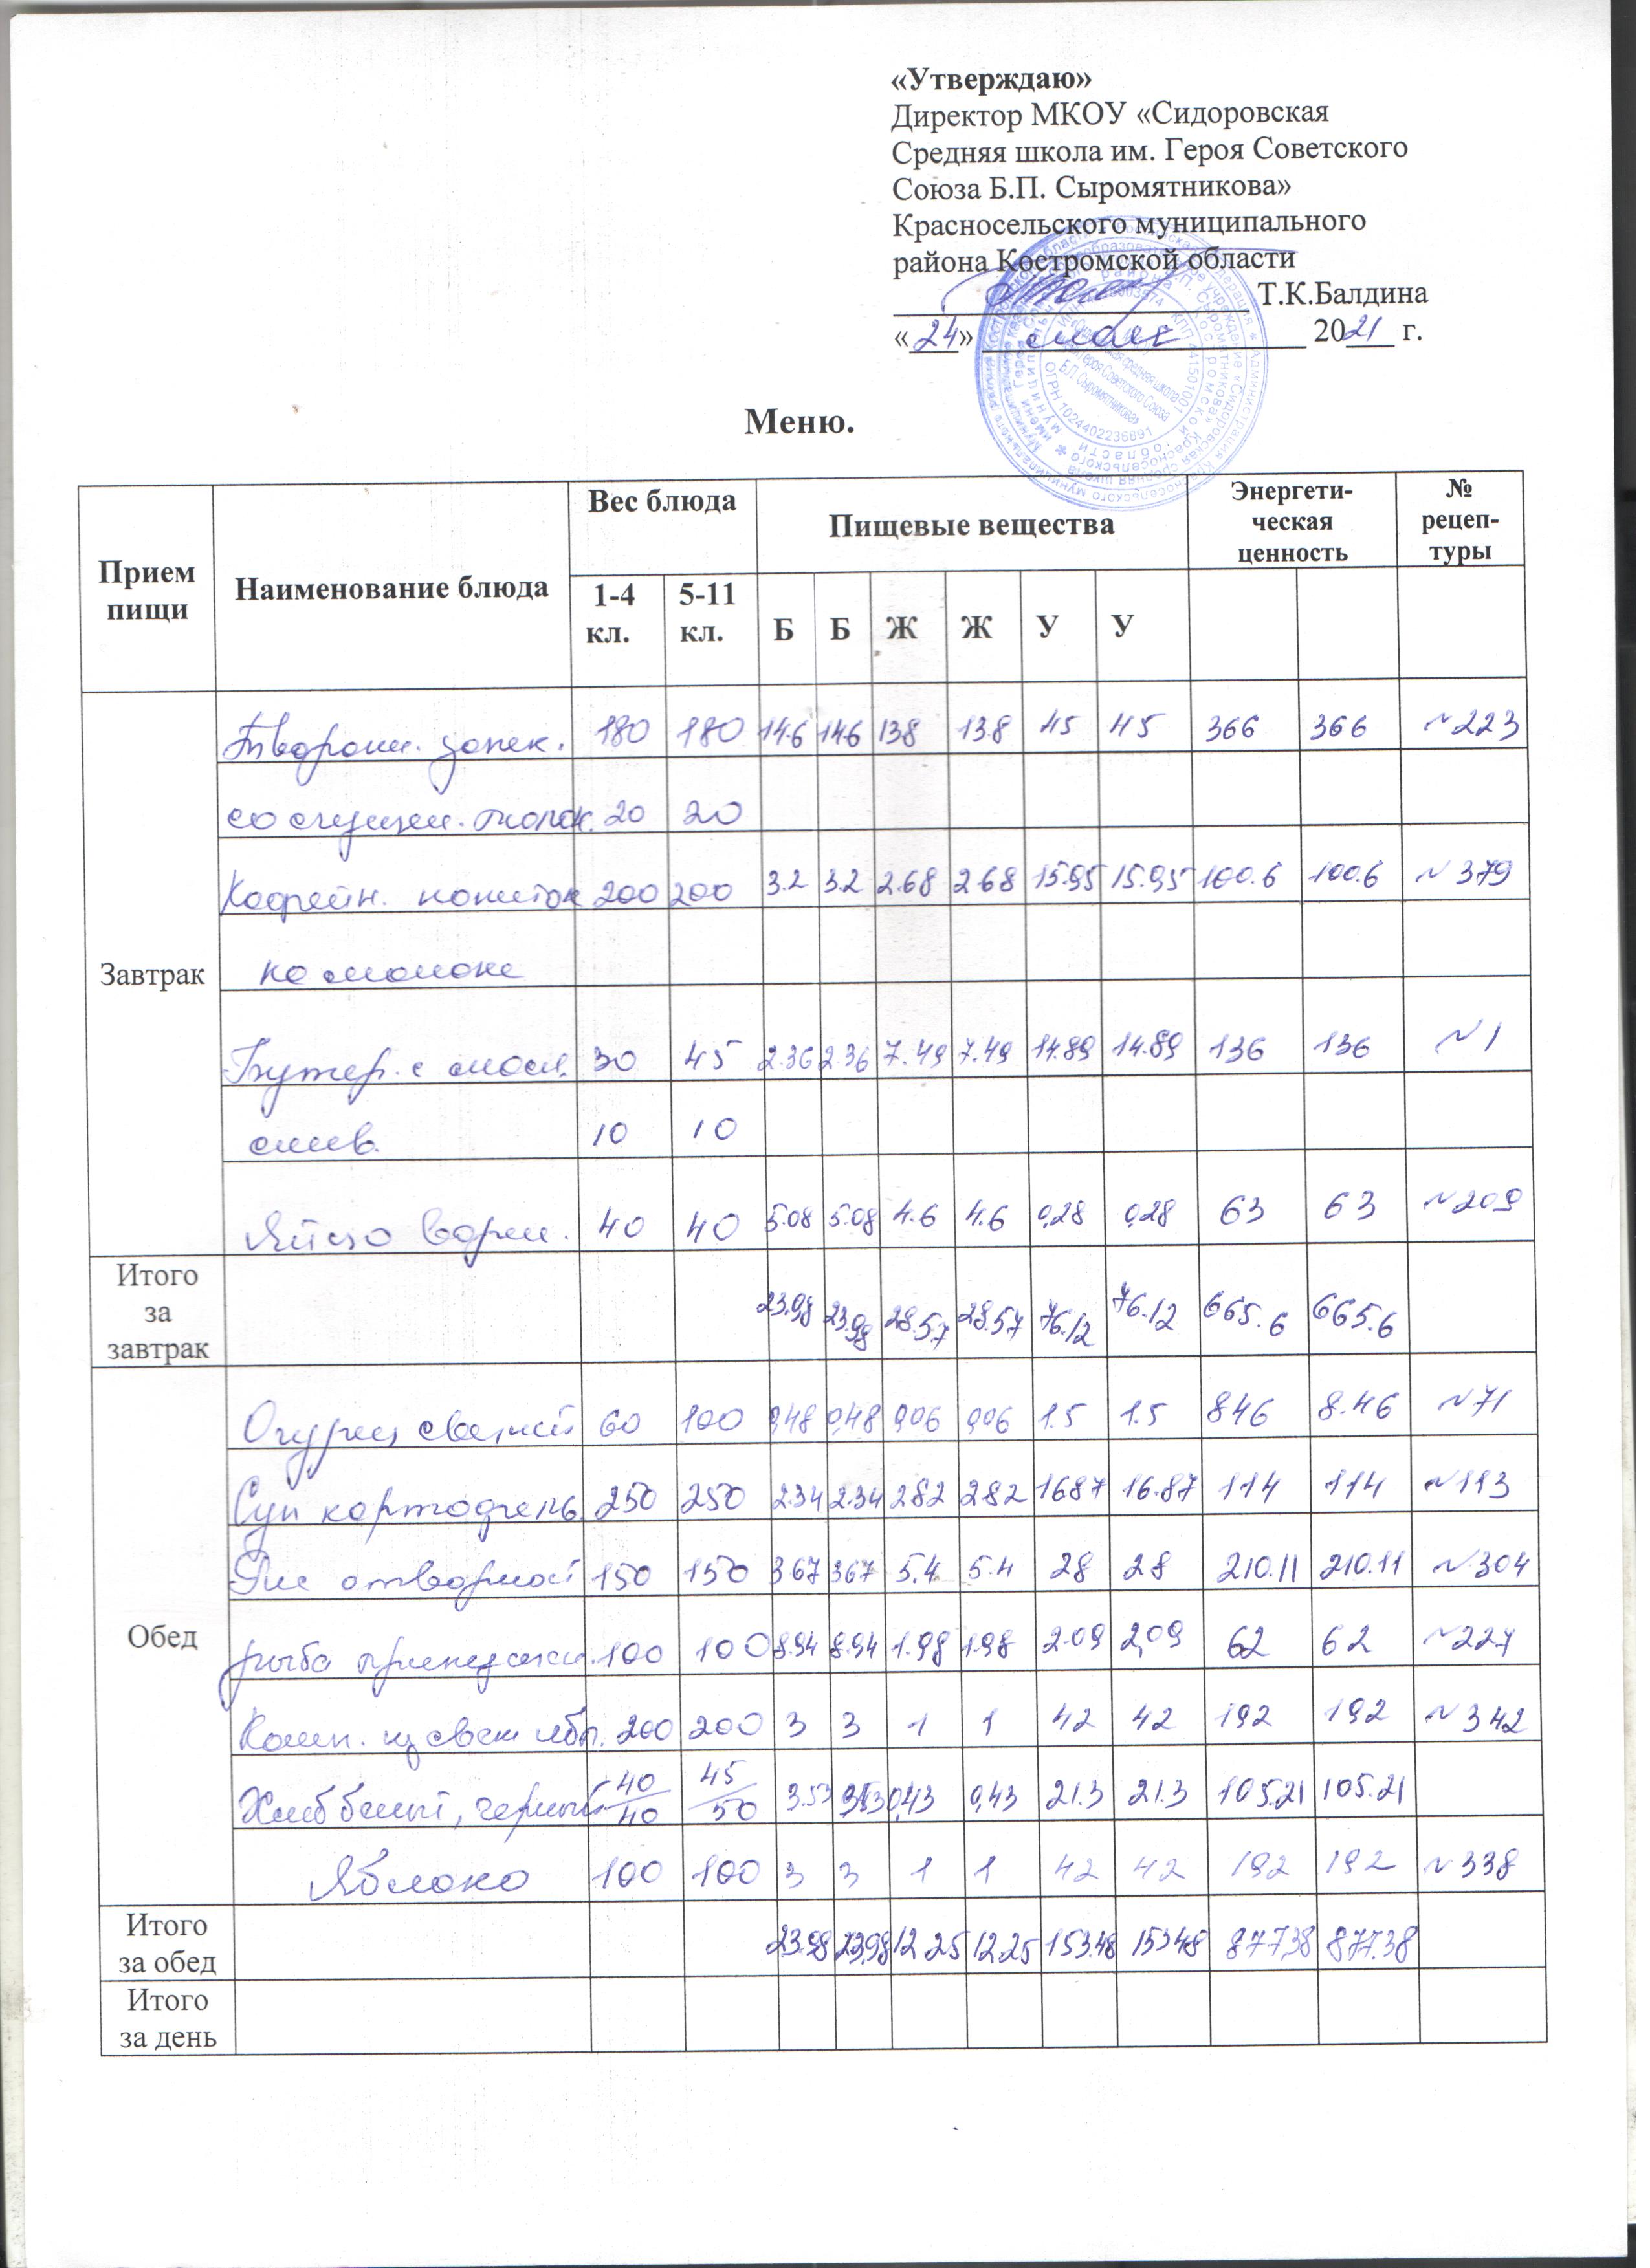 «Утверждаю»
Директор МКОУ «Сидоровская
Средняя школа им. Героя Советского
Союза Б.П. Сыромятникова»
Красносельского муниципального
района Костромской области
Т.К.Балдина
«24» мая 2021 г.
Меню.
Прием пищи Наименование блюда Вес блюда Пищевые вещества Энергети-ческая ценность № рецеп-туры
1-4 кл. 5-11 кл. Б Б Ж Ж У У
Завтрак
Творожн. запек. 180 180 14.6 14.6 13.8 13.8 45 45 366 366 №223
со сгущен. молок. 20 20
Кофейн. напиток 200 200 3.2 3.2 2.68 2.68 15.95 15.95 100.6 100.6 №379
на молоке
Бутер. с масл. 30 45 2.36 2.36 7.49 7.49 14.89 14.89 136 136 №1
слив. 10 10
Яйцо варен. 40 40 5.08 5.08 4.6 4.6 0,28 0,28 63 63 №209
Итого за завтрак 23.98 23.98 28.57 28.57 76.12 76.12 665.6 665.6
Обед
Огурец свежий 60 100 0,48 0,48 0,06 0,06 1.5 1.5 8.46 8.46 №71
Суп картофель. 250 250 2.34 2.34 2.82 2.82 16.87 16.87 114 114 №113
Рис отварной 150 150 3.67 3.67 5.4 5.4 28 28 210.11 210.11 №304
рыба припущен. 100 100 8.94 8.94 1.98 1.98 2.09 2,09 62 62 №227
Комп. из свеж ябл. 200 200 3 3 1 1 42 42 192 192 №342
Хлеб белый, черный 40/40 45/50 3.53 3.53 0,43 0,43 21.3 21.3 105.21 105.21
Яблоко 100 100 3 3 1 1 42 42 192 192 №338
Итого за обед 23.98 23.98 12.25 12.25 153.48 153.48 877.38 877.38
Итого за день